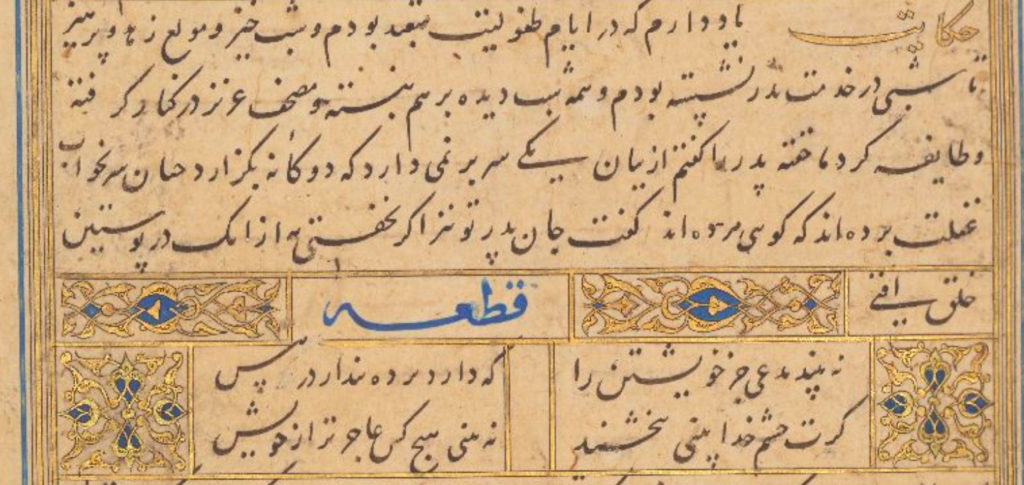 حکایت یاد دارم که در ایام طفولیت متعبد بودم و شب خیز و مولع زهد و پرهیز
تا شبی در خدمت پدر نشسته بودم و همه شب دیده برهم نبسته و مصحف عزیز در کنار گرفته
وطایفه گرد ما خفته پدر را گفتم ازینان یکی سر بر نمی دارد که دوکانه بگزارد چنان سر خواب
غفلت برده اند که کویی مرده اند کفت جان پدر تو نیز اکر بخفتی به از انک در پوستین
خلق افتی
قطعه
نه بیند مدعی جز خویشتن را که دارد پرده پندار در پیش
کرت چشم خدا بینی ببخشند نه بینی هیچ کس عاجزتر از خویش